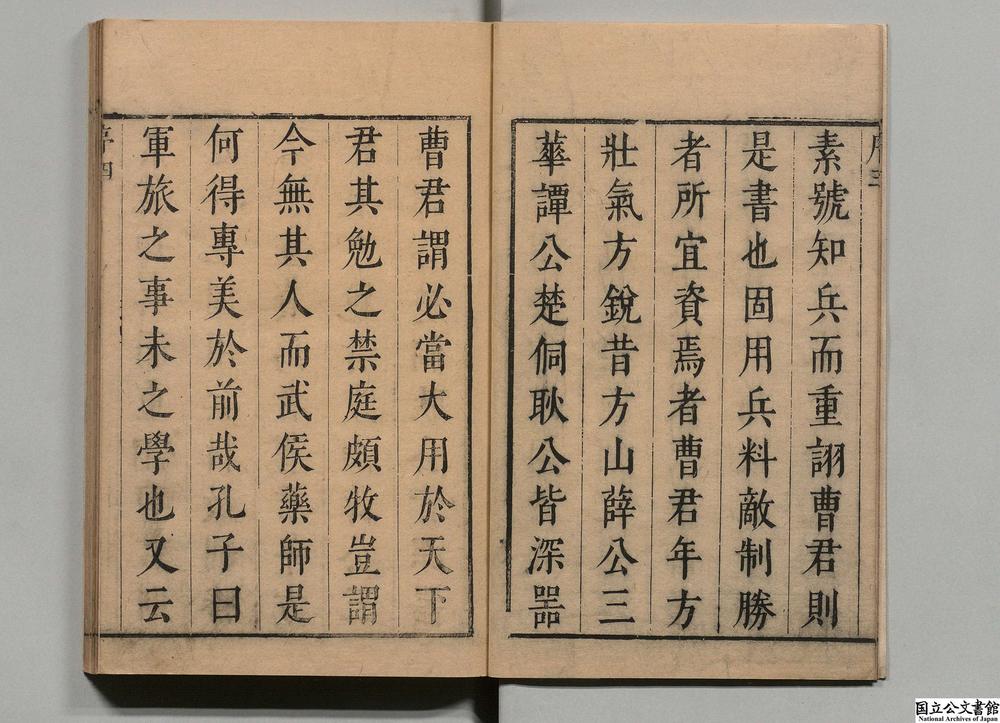 序三
素號知兵而重詡曹君則
是書也固用兵料敵制勝
者所宜資焉者曹君年方
壯氣方銳昔方山薛公三
華譚公楚侗耿公皆深器
曹君謂必當大用於天下
君其勉之禁庭頗牧豈謂
今無其人而武侯藥師是
何得專美於前哉孔子曰
軍旅之事未之學也又云
序四
国立公文書館
National Archives of Japan